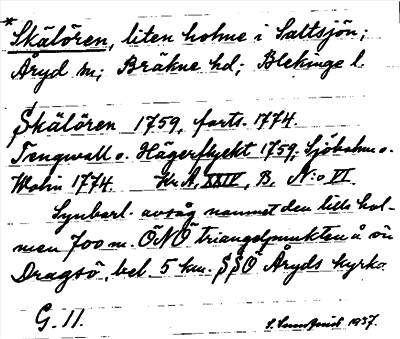 * Skälören, liten holme i Saltsjön;
Åryd sn; Bräkne hd; Blekinge l.
Skälören 1759, forts. 1774.
Tengwall o. Hägerflycht 1759; Sjöholm o.
Wolin 1774. Kr.A, XXIV, B, N:o VI
Synbarl. avsåg namnet den lilla hol-
men 700 m. ÖNÖ triangelpunkten å ön
Dragsö, bel. 5 km. SSÖ Åryds kyrka.
G. 11.
1937.